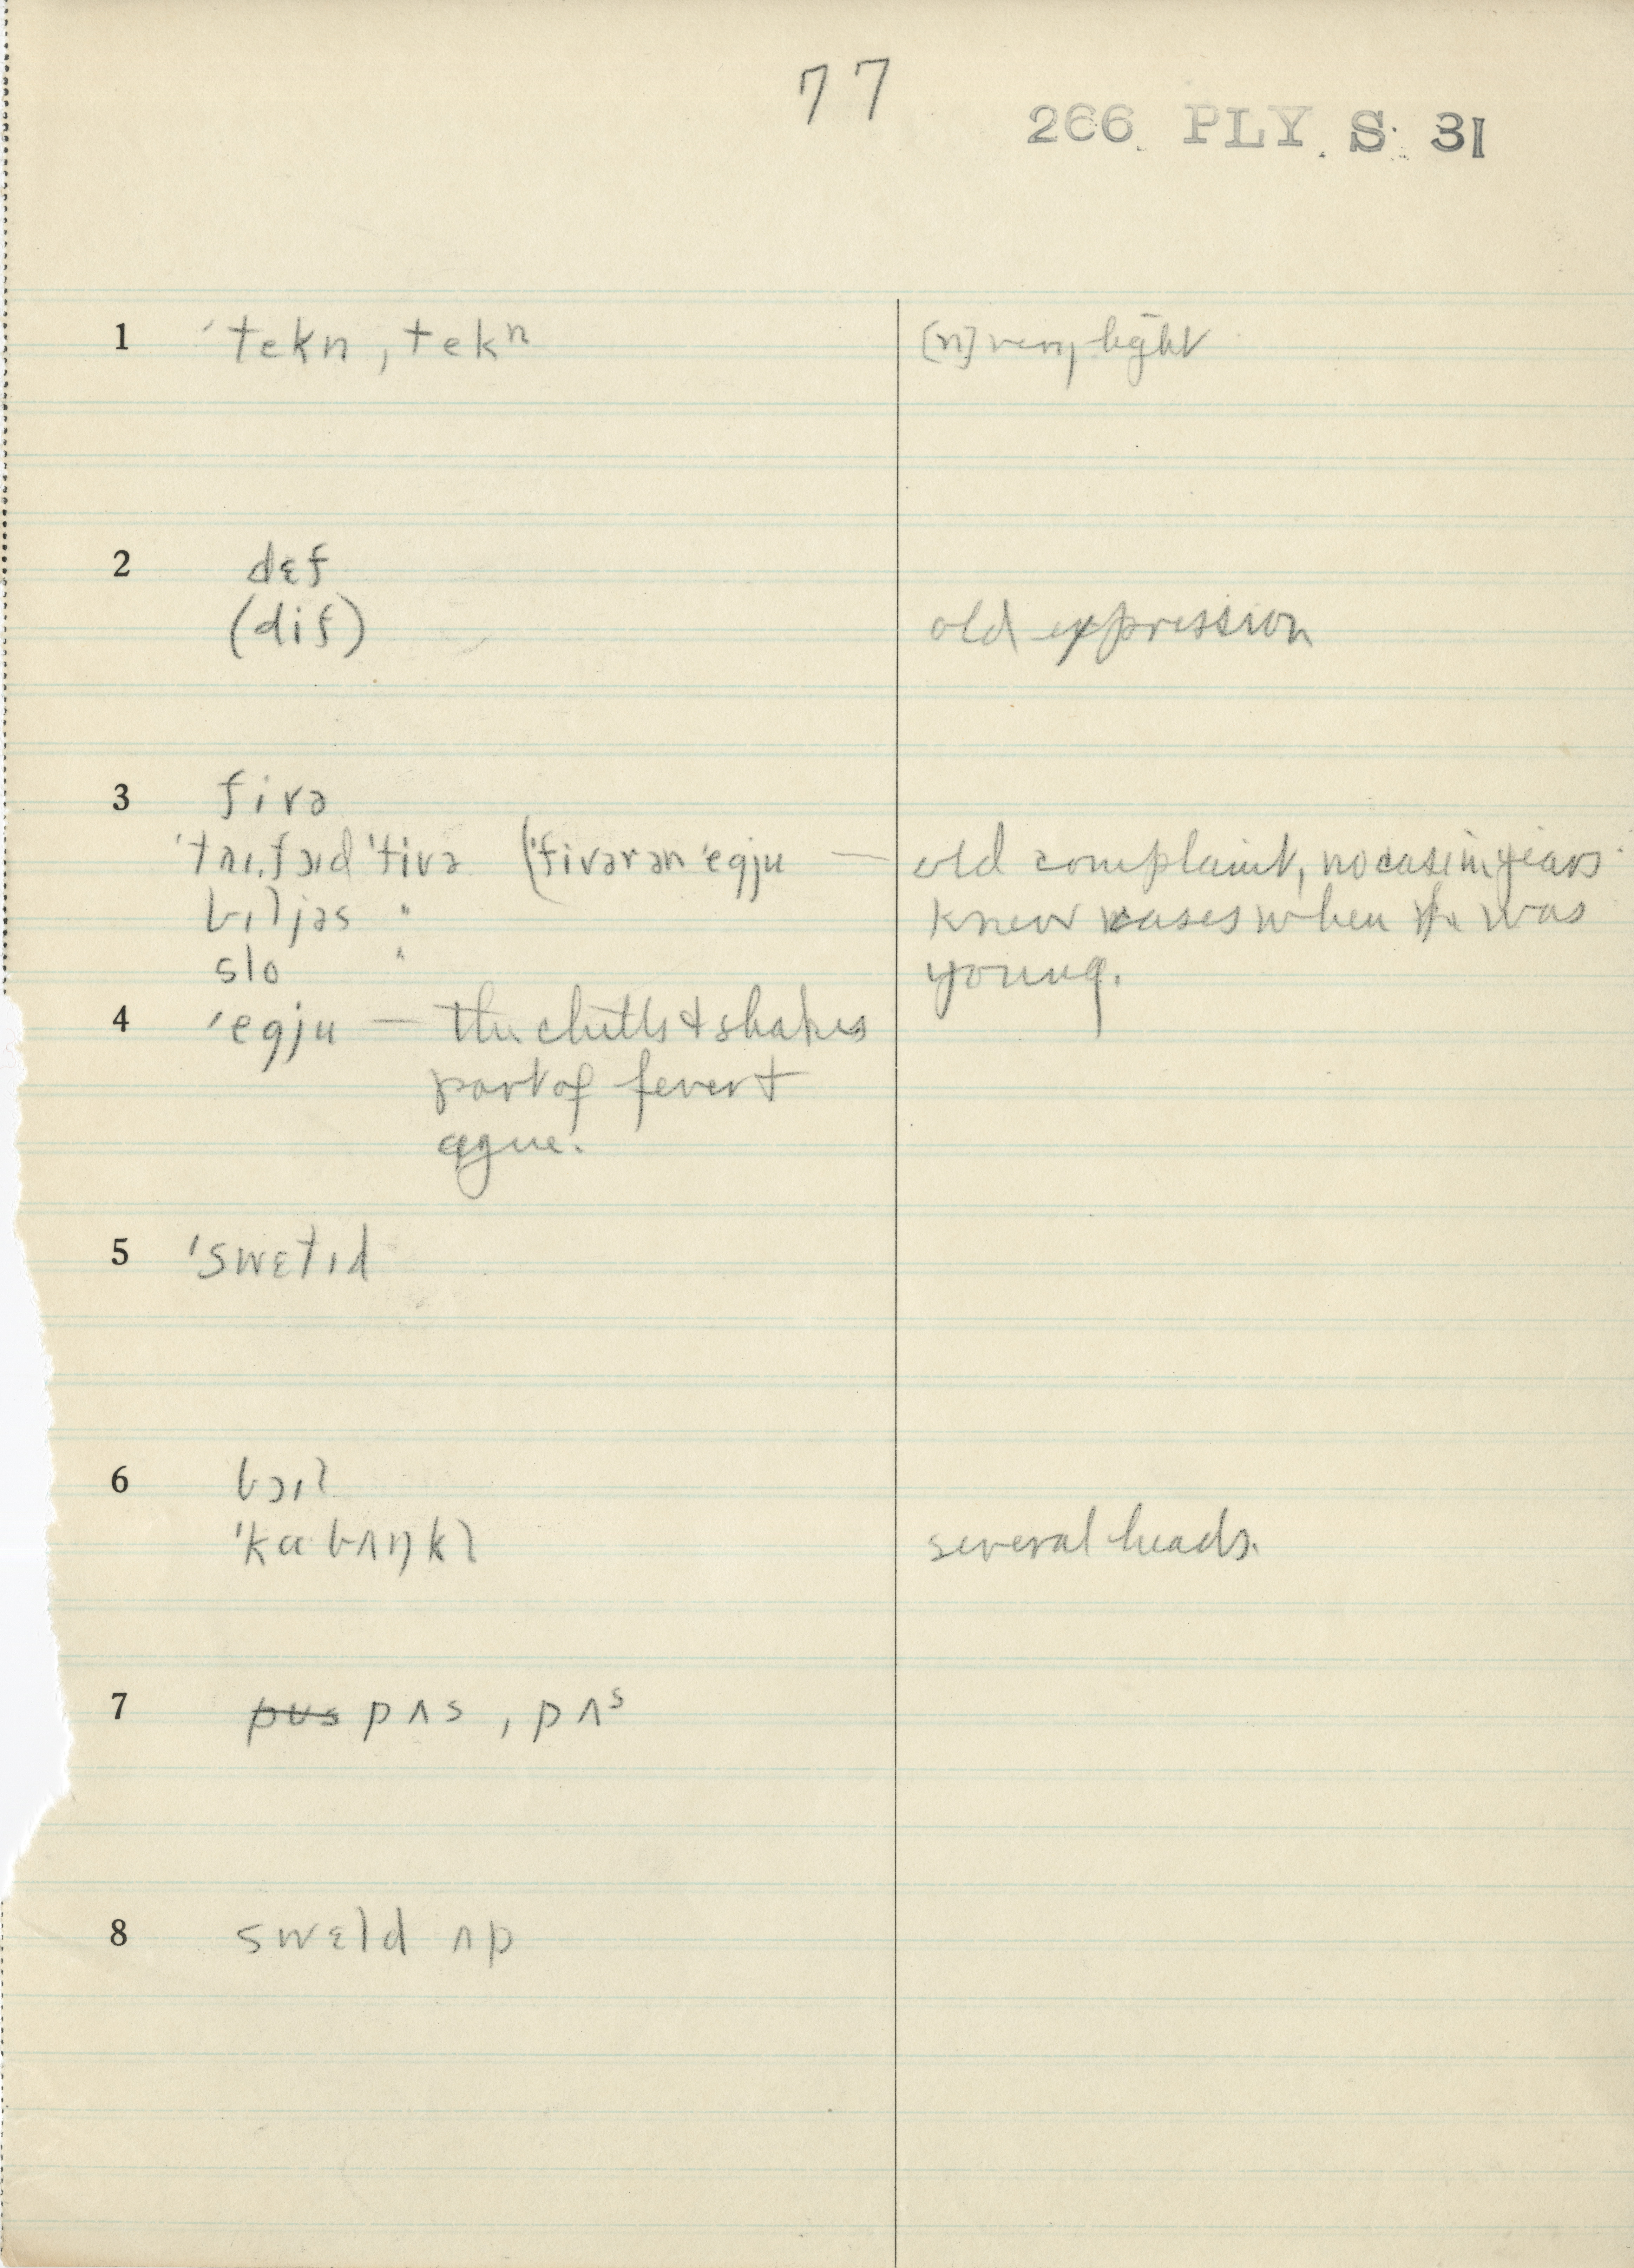 77
266 PLY. S. 31
1 ˈtekn, tekⁿ [n] very light
2 dɛf
(dif) old expression
3 fivə
ˈtaɪˌfɔɪd ˈfivə (ˈfivərənˈegju — old complaint, no case in years
bɪljəs " knew cases when he was
slo " young.
4 ˈegju — the chills & shakes
part of fever &
ague.
5 ˈswɛtɪd
6 bɔɪl
ˈkɑbʌŋkl several heads.
7 pus pʌs, pʌˢ
8 swɛld ʌp